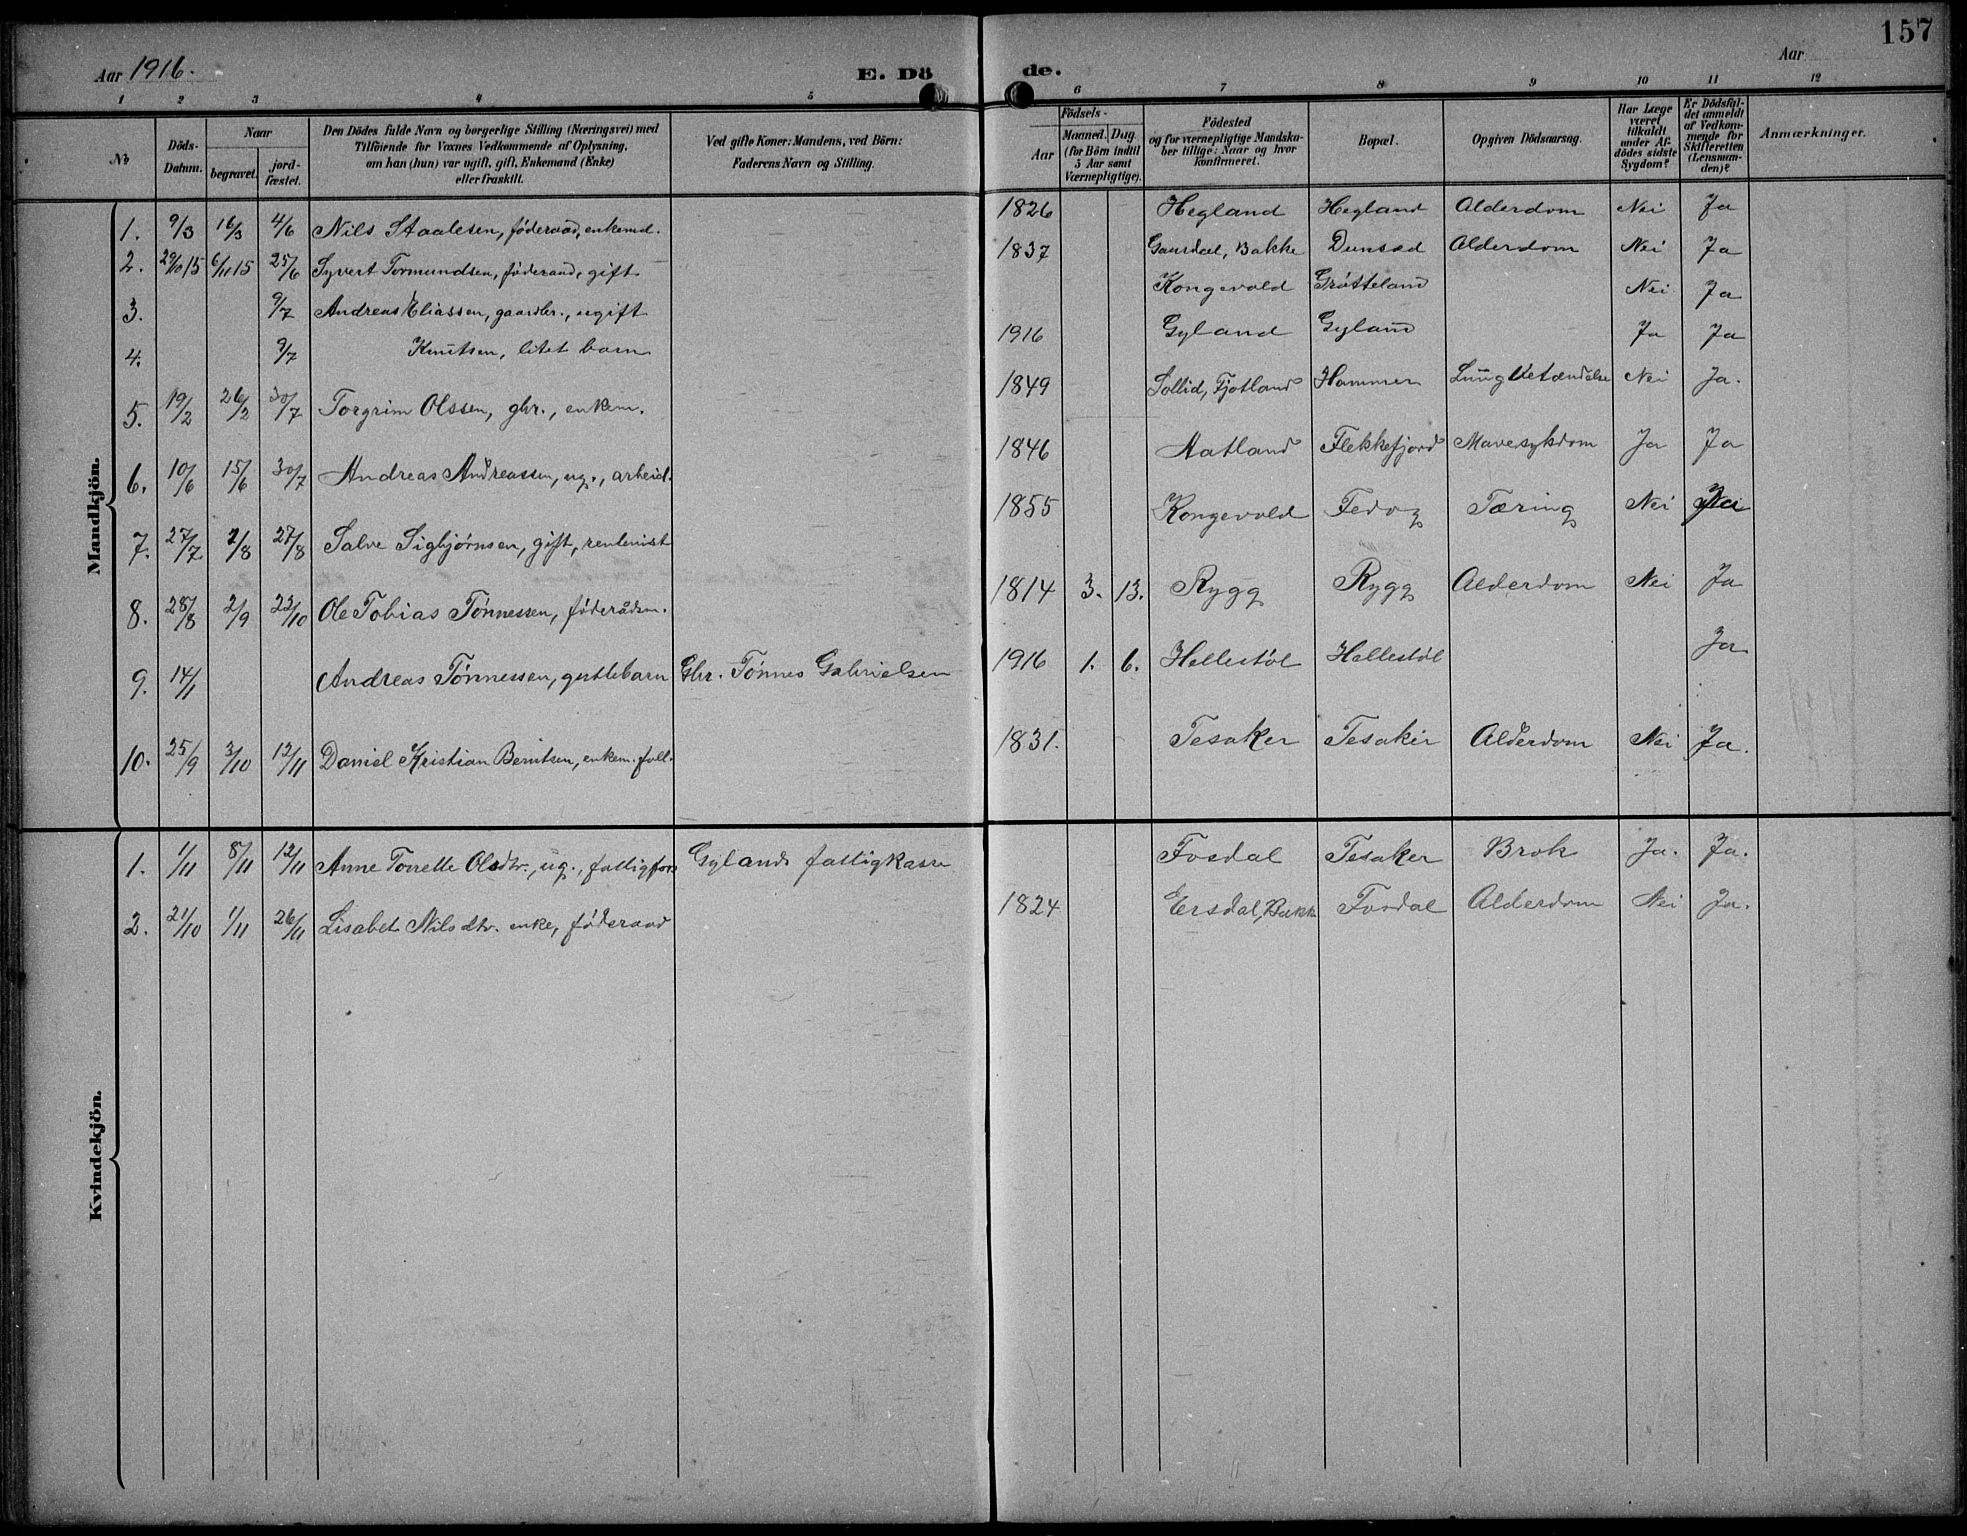 157
Aar 1916.
E. Dö de.
Aar
1 2 3 4 5 6 7 8 9 10 11 12
No
Döds-Datum.
Naar
begravet.
jord-fæstet.
Den Dödes fulde Navn og borgerlige Stilling (Næringsvei) med
Tilföiende for Voxnes Vedkommende af Oplysning,
om han (hun) var ugift, gift, Enkemand (Enke)
eller fraskilt.
Ved gifte Koner: Mandens, ved Börn:
Faderens Navn og Stilling.
Födsels-
Aar
Maaned. Dag.
(for Börn indtil
5 Aar samt
Værnepligtige).
Födested
og for værnepligtige Mandska-
ber tillige: Naar og hvor
konfirmeret.
Bopæl.
Opgiven Dödsaarsag.
Har Læge
været
tilkaldt
under Af-
dödes sidste
Sygdom?
Er Dödsfal-
det anmeldt
af Vedkom-
mende for
Skifteretten
(Lensman-
den)?
Anmærkninger.
Mandkjön.
1. 9/3 16/3 4/6 Nils Staalesen, föderaad, enkemd. 1826 Hegland Hegland Alderdom Nei Ja
2. 29/10 15 6/11 15 25/6 Syvert Tormundsen, föderaad, gift 1837 Gausdal, Bakke Dunsæd Alderdom Nei Ja
3. 9/7 Andreas Eliassen, gaardbr., ugift Kongevold Grøtteland Nei Ja
4. 9/7 Knutsen, litet barn 1916 Gyland Gyland Ja Ja
5. 19/2 26/2 30/7 Torgrim Olssen, gbr., enkem. 1849 Sollid, Fjotland Hammer Lungebetændelse Nei Ja.
6. 10/6 15/6 30/7 Andreas Andreassen, ug., arbeid. 1846 Aatland Flekkefjord Mavesykdom Ja Ja
7. 27/7 2/8 27/8 Salve Sigbjørnsen, gift, rentenist 1855 Kongevold Fedog Tæring Nei
8. 28/8 2/9 22/10 Ole Tobias Tønnessen, føderådsm. 1814 3. 13. Rygg Rygg Alderdom Nei Ja
9. 14/1 Andreas Tønnessen, gutebarn Gbr. Tønnes Gabrielsen 1916 1. 6. Hellestøl Hellestøl Ja
10. 25/9 3/10 12/11 Daniel Kristian Berntsen, enkem. foll. 1831. Tesaker Tesaker Alderdom Nei Ja.
Kvindekjön.
1. 1/11 8/11 12/11 Anne Torrette Olsdtr., ug., fattigfors Gylands fattigkasse Fosdal Tesaker Brok Ja. Ja.
2. 21/10 1/11 26/11 Lisabet Nilsdtr. enke, føderaad 1824 Eersdal, Bakk Fosdal Alderdom Nei Ja.